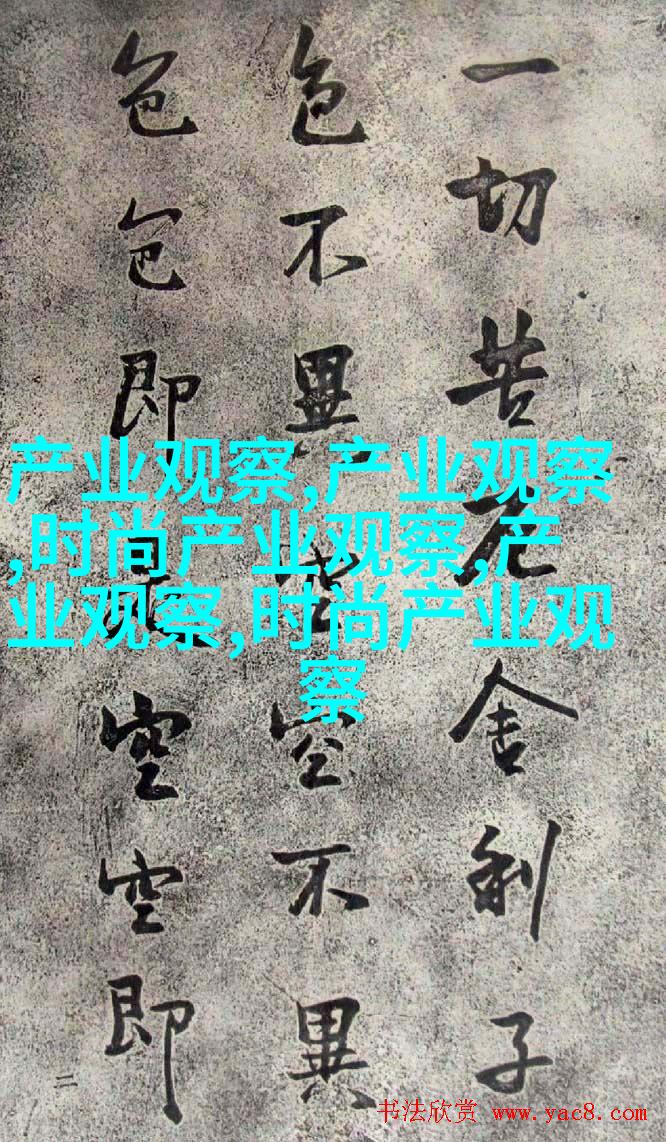 一切苦厄舍利子
色不異空空不異
色色即是空空即
二
产业观察,产业观察
,时尚产业观察,产
业观察,时尚产业观
察
书法欣赏 www.yac8.com